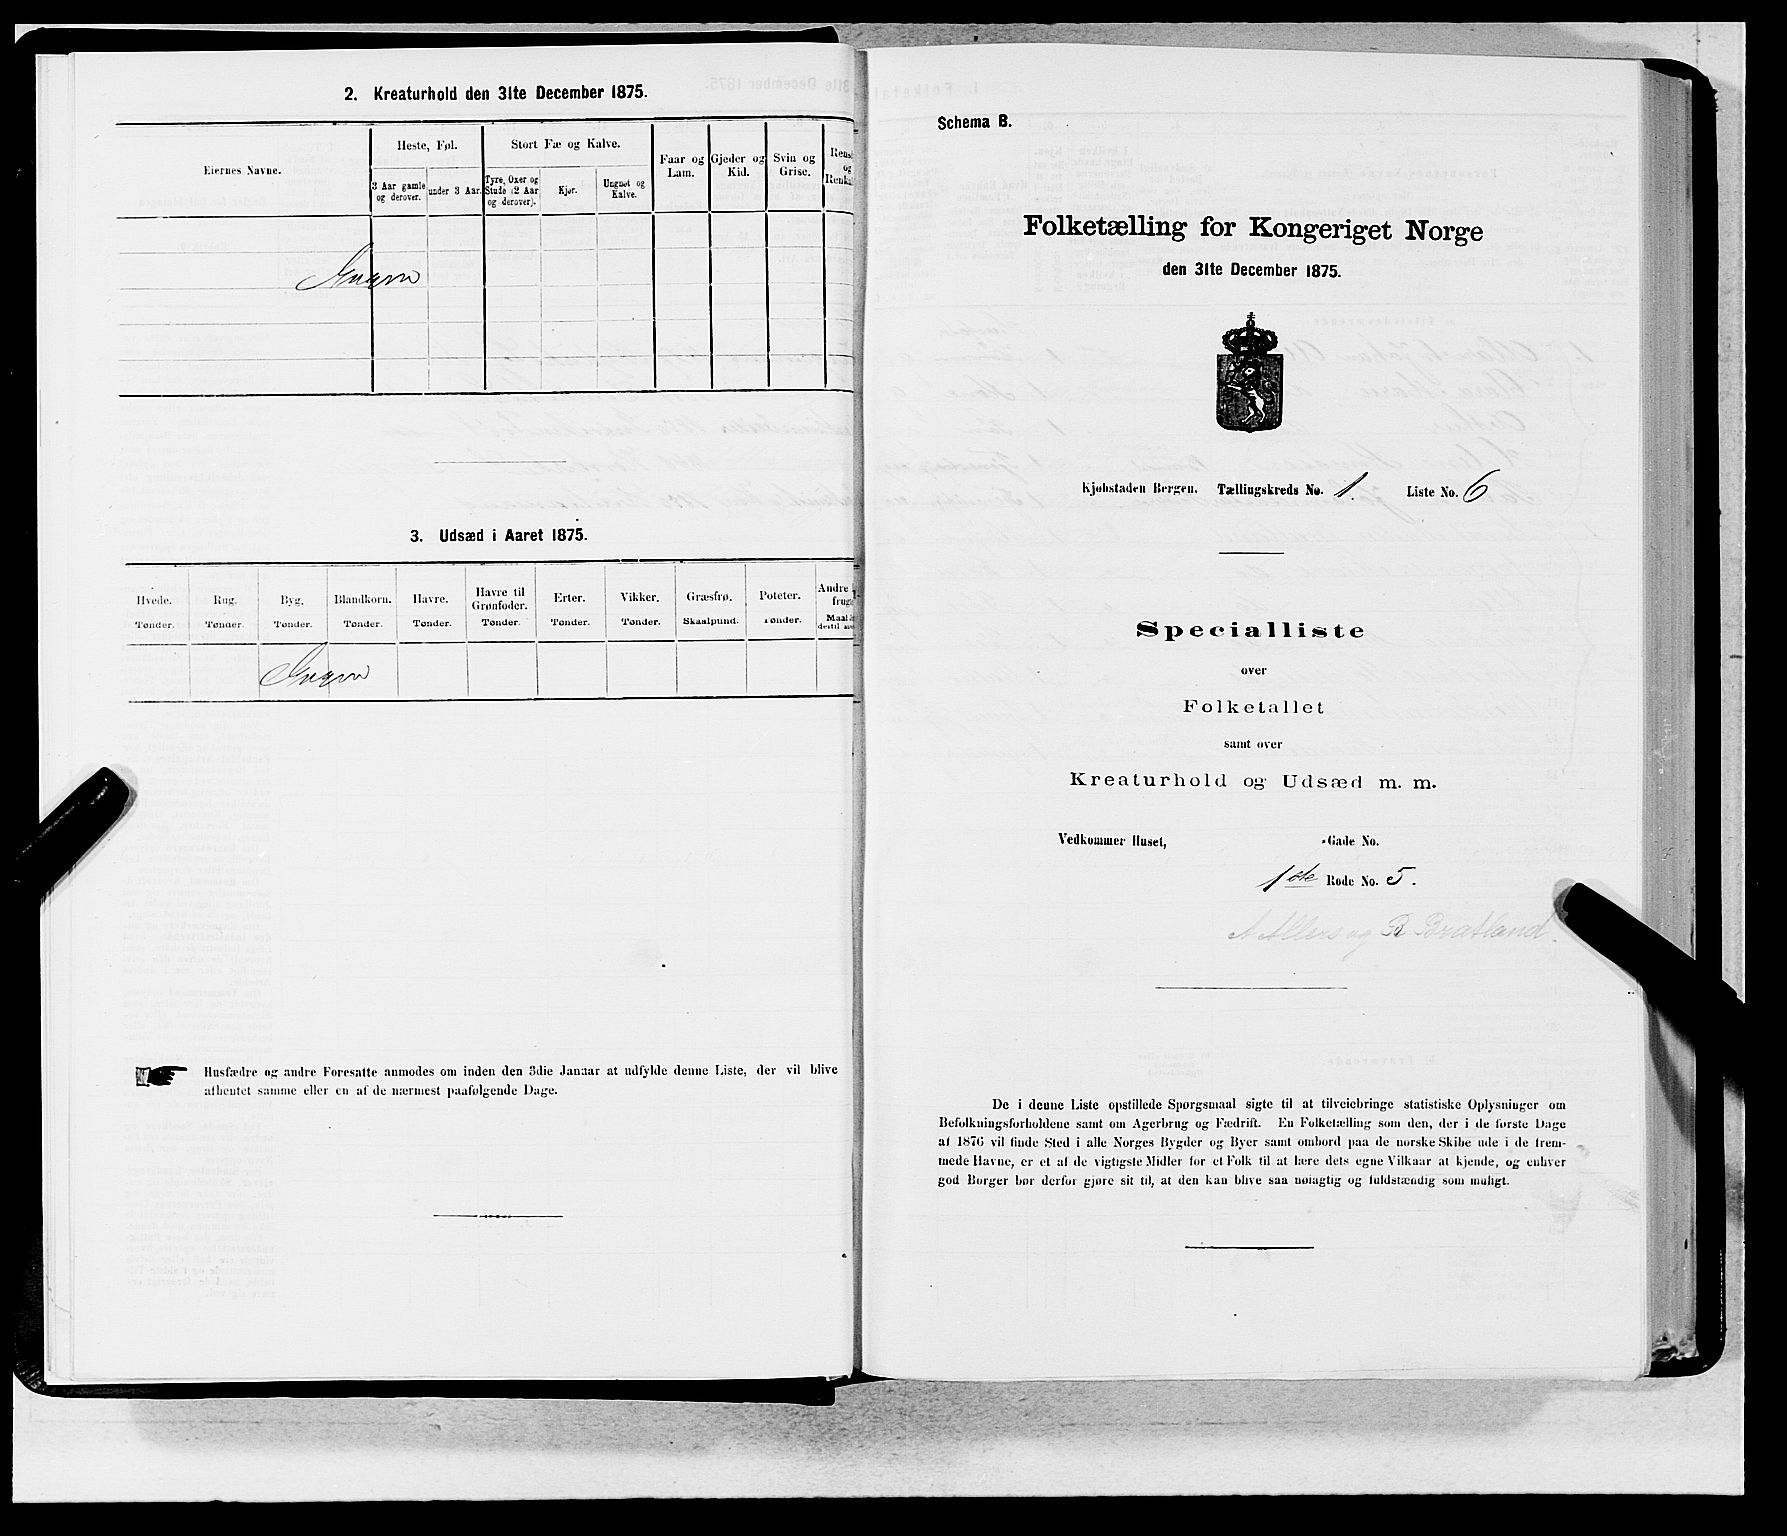 2. Kreaturhold den 31te December 1875.
Eiernes Navne.
Heste, Føl.
Stort Fæ og Kalve.
Faar og Lam.
Gjeder og Kid.
Svin og Grise.
3 Aar gamle og derover.
under 3 Aar.
Tyre, Oxer og Stude (2 Aar og derover).
Kjør.
Ungnøt og Kalve.
Ingen
3. Udsæd i Aaret 1875.
Hvede. Rug. Byg. Blandkorn. Havre. Havre til Grønfoder. Erter. Vikker. Græsfrø. Poteter.
Tønder. Tønder. Tønder. Tønder. Tønder. Tønder. Tønder. Tønder. Skaalpund. Tønder.
Ingen
Husfædre og andre Foresatte anmodes om inden den 3die Januar at udfylde denne Liste, der vil blive
afhentet samme eller en af de nærmest paafølgende Dage.
Schema B.
Folketælling for Kongeriget Norge
den 31te December 1875.
Kjøbstaden Bergen. Tællingskreds No. 1. Liste No. 6
Specialliste
over
Folketallet
samt over
Kreaturhold og Udsæd m. m.
Vedkommer Huset, -Gade No.
1ste Rode No. 5.
A Allers og B Bratland
De i denne Liste opstillede Spørgsmaal sigte til at tilveiebringe statistiske Oplysninger om
Befolkningsforholdene samt om Agerbrug og Fædrift. En Folketælling som den, der i de første Dage
af 1876 vil finde Sted i alle Norges Bygder og Byer samt ombord paa de norske Skibe ude i de frem-
mede Havne, er et af de vigtigste Midler for et Folk til at lære dets egne Vilkaar at kjende, og enhver
god Borger bør derfor gjøre sit til, at den kan blive saa nøiagtig og fuldstændig som muligt.